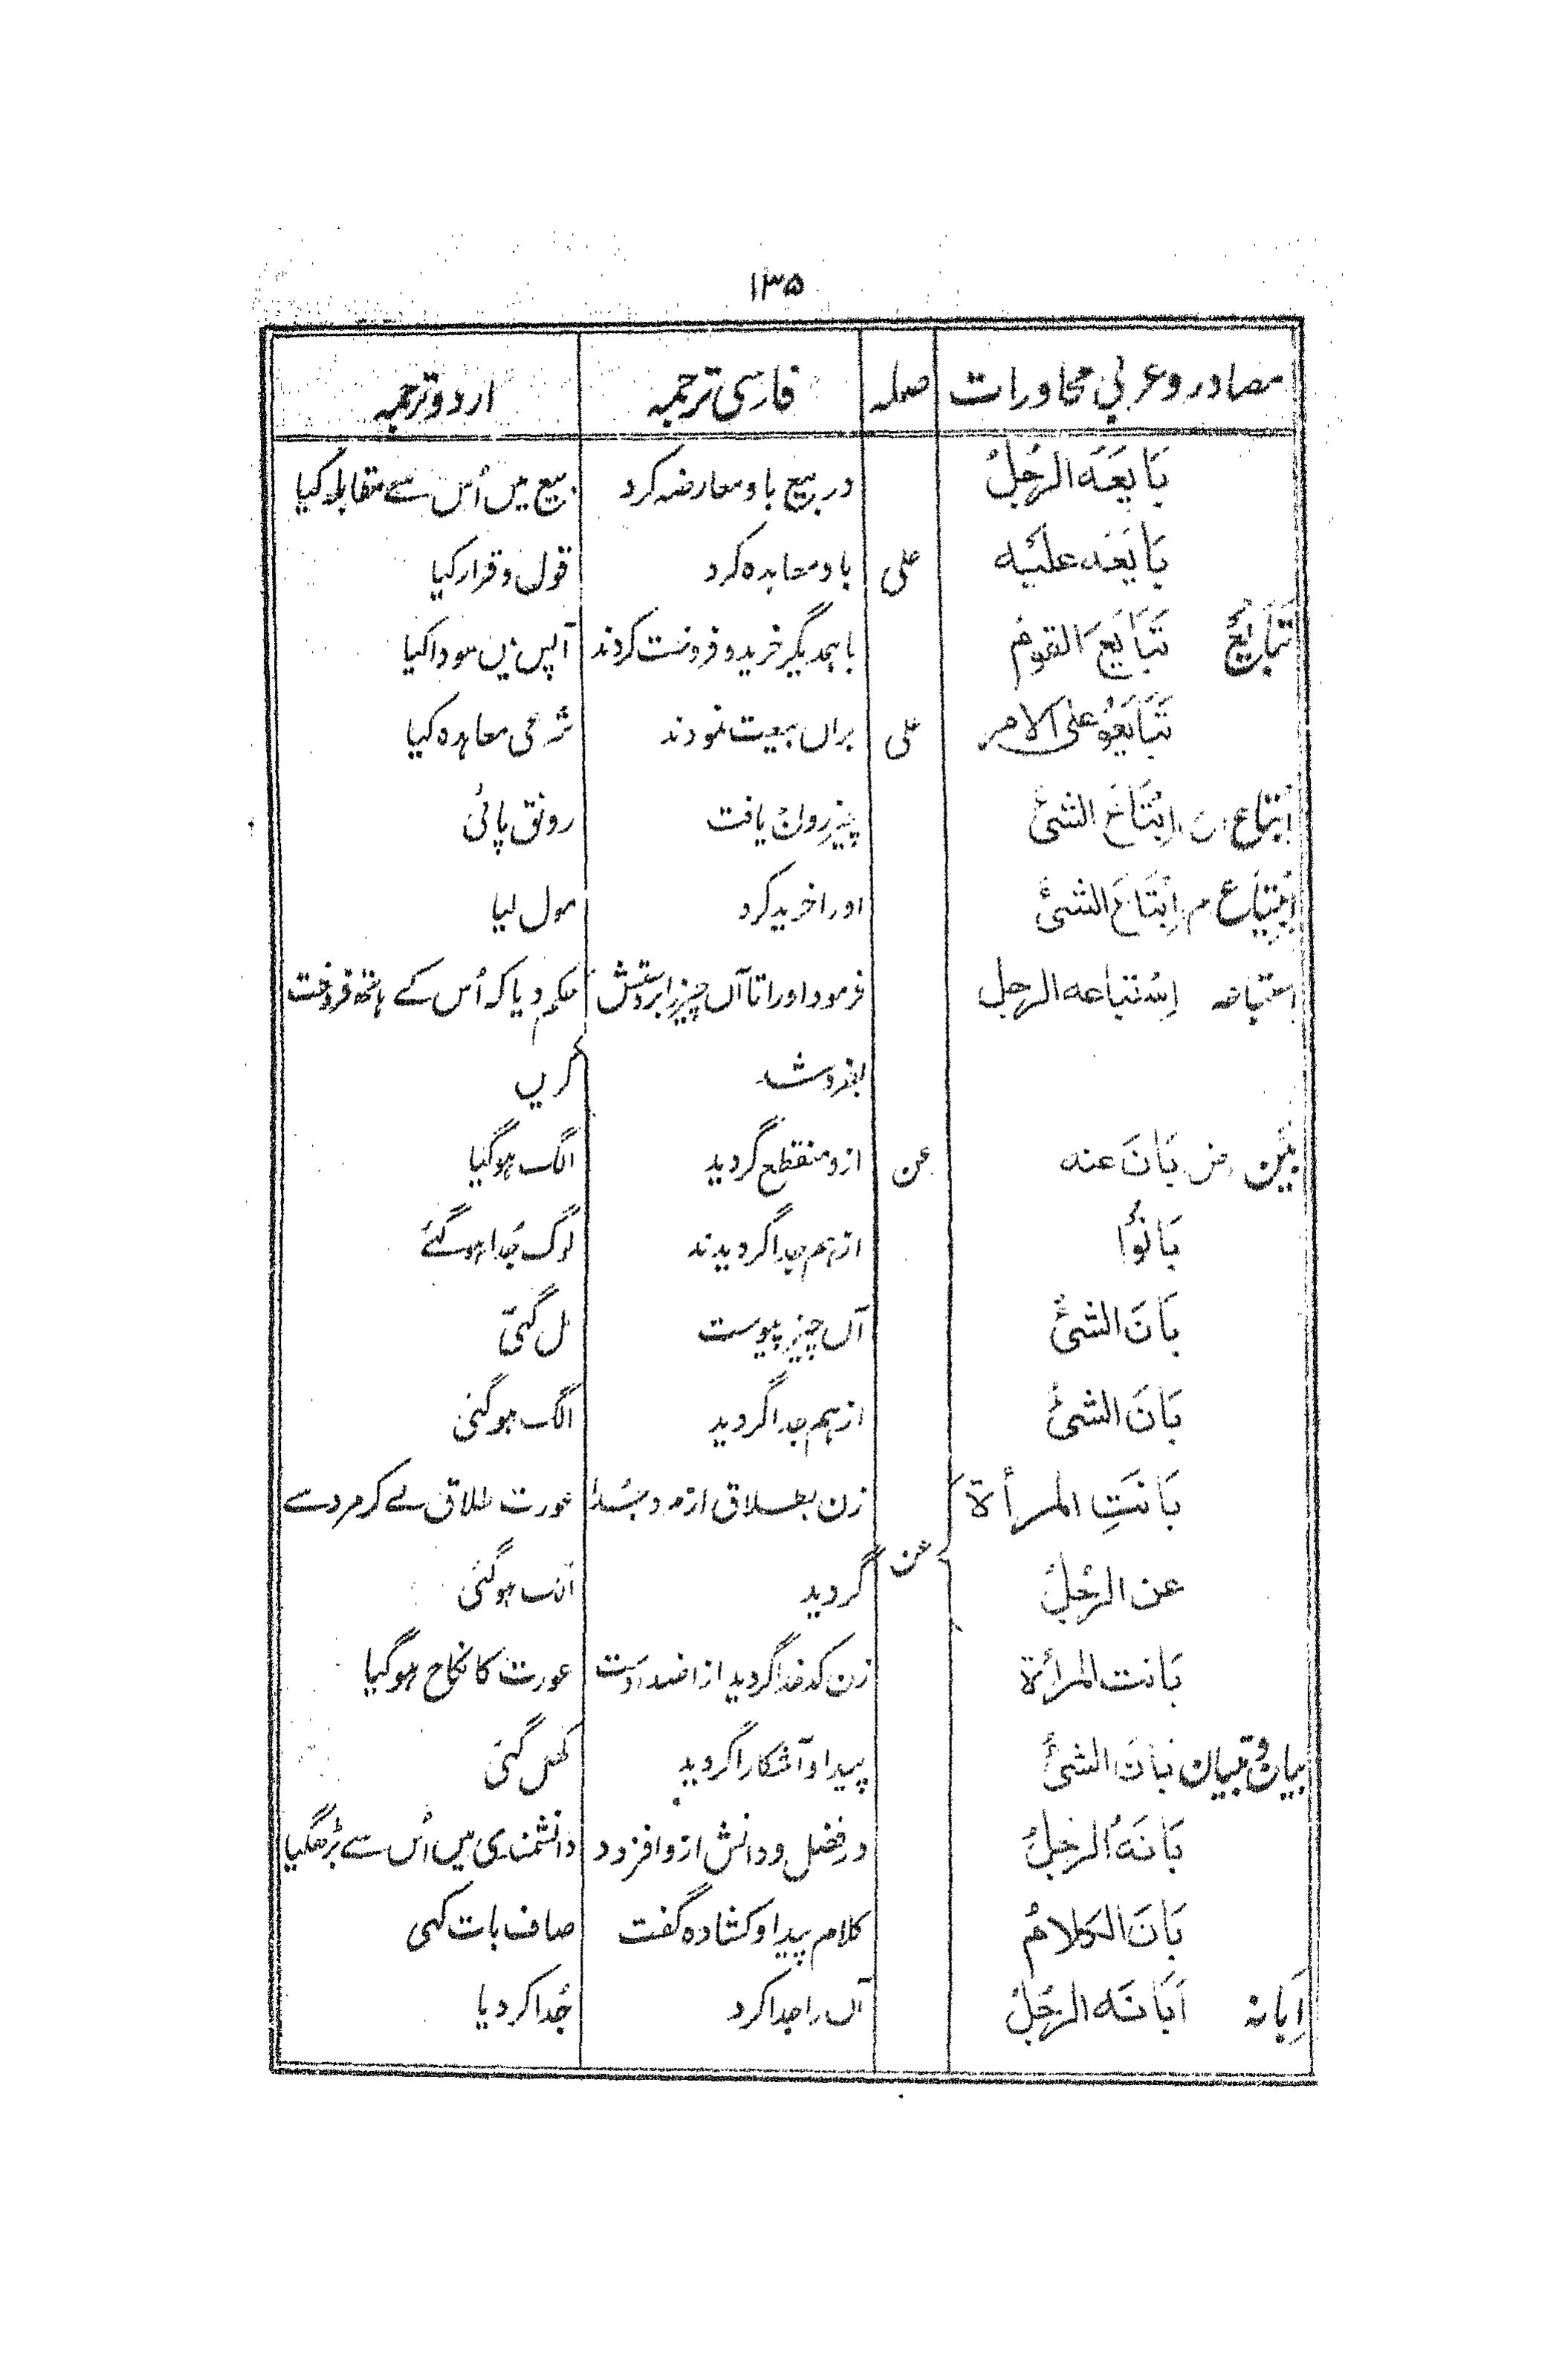 ۱۳۵
مصادر و عربی محاورات صلہ فارسی ترجمہ اردو ترجمہ
بَایَعَہَ الرجُلُ در بیع باو معارضہ کرد بیع میں اُس سے مقابلہ کیا
بَایَعَہ عَلَیہ علی باو معاہدہ کرد قول و قرار کیا
تَبَایُعٌ تَبَایَعَ القومُ باہمدیگر خرید و فروخت کردند آپس میں سودا کیا
تَبَایَعُوْ علی الامر علی براں بیعت نمودند شرعی معاہدہ کیا
اِبْتَاعَ الشیُٔ چیز رونق یافت رونق پائی
اِبْتِیَاع م اِبْتَاعَ الشیُٔ اورا خرید کرد مول لیا
استباعہ اِسْتباعہ الرجل فرمود اورا تا آں چیز را بدستش حکم دیا کہ اُس کے ہاتھ فروخت
بفروشد کریں
بَیْن ض بَانَ عنہ عن ازو منقطع گردید الگ ہوگیا
بَانُوْا ازہم جدا گردیدند لوگ جُدا ہوگئے
بَانَ الشیُٔ آں چیز پیوست مل گئی
بَانَ الشیُٔ ازہم جدا گردید الگ ہوگئی
بَانَتِ المرأۃ زن بطلاق از مرد جُدا عورت طلاق لے کر مرد سے
عن الرجُلِ عن گردید الگ ہوگئی
بَانت المرأۃ زن کدخدا گردید از اضداد است عورت کا نکاح ہوگیا
بیان و تبیان بَانَ الشیُٔ پیدا و آشکارا گردید کھل گئی
بَانَہُ الرجلُ در فضل و دانش ازو افزود دانشمندی میں اُس سے بڑھگیا
بَانَ الکلامُ کلام پیدا و کشادہ گفت صاف بات کہی
اِبانہ اَبَانَہ الرجُلُ آں را جدا کرد جُدا کر دیا